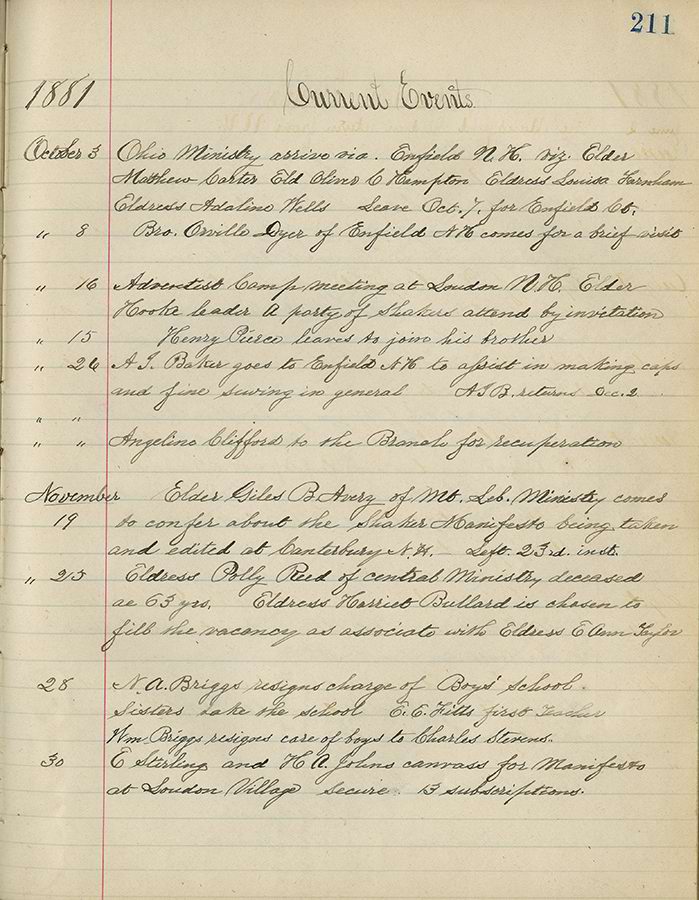 211
1881 Current Events
October 3 Ohio Ministry arrive via. Enfield N.H. viz. Elder
Mathew Carter Eld Oliver C Hampton Eldress Louisa Farnham
Eldress Adaline Wells Leave Oct. 7. for Enfield Ct.
" 8 Bro. Orville Dyer of Enfield N.H comes for a brief visit
" 16 Adventist Camp meeting at Loudon N.H. Elder
leader A party of Shakers attend by invitation
" 15 Henry Pierce leaves to join his brother
" 26 A. J. Baker goes to Enfield N.H. to assist in making caps
and fine sewing in general A J B. returns Dec. 2
" "
" " Angeline Clifford to the Branch for recuperation
November Elder Giles B Avery of Mt. Leb. Ministry comes
19 to confer about the Shaker Manifesto being taken
and edited at Canterbury N.H. Left. 23rd. inst.
" 25 Eldress Polly Reed of central Ministry deceased
ae 63 yrs. Eldress Harriet Bullard is chosen to
fill the vacancy as associate with Eldress E Ann Taylor
28 N. A. Briggs resigns charge of Boys' School.
Sisters take the school E. E. first teacher
Wm Briggs resigns care of boys to Charles Stevens.
30 E Stirling and H A. Johns canvass for Manifesto
at Loudon Village secure 13 subscriptions.